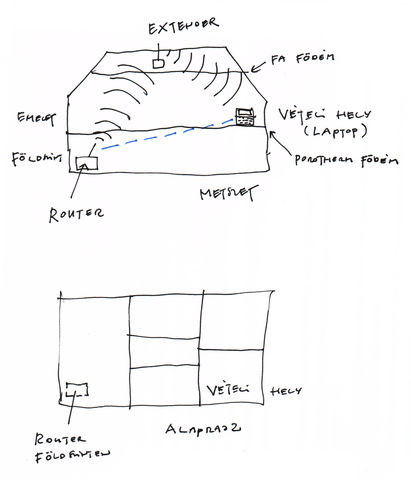 EXTENDER
FA FÖDÉM
EMELET
VÉTELI HELY
(LAPTOP)
FÖLDSZINT
POROTHERM FÖDÉM
ROUTER
METSZET
VÉTELI HELY
ALAPRAJZ
ROUTER
FÖLDSZINTEN